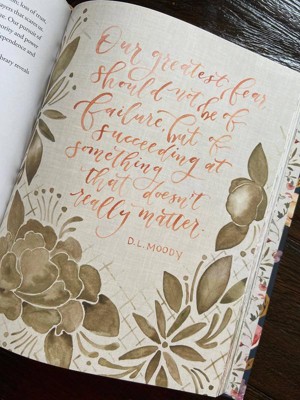 loss of trust,
ayers that scars on
ue. Our pursuit of
ority and power
ependence and
brary reveals
Our greatest fear
should not be of
failure, but of
succeeding at
something
that doesn't
really matter.
D.L. MOODY